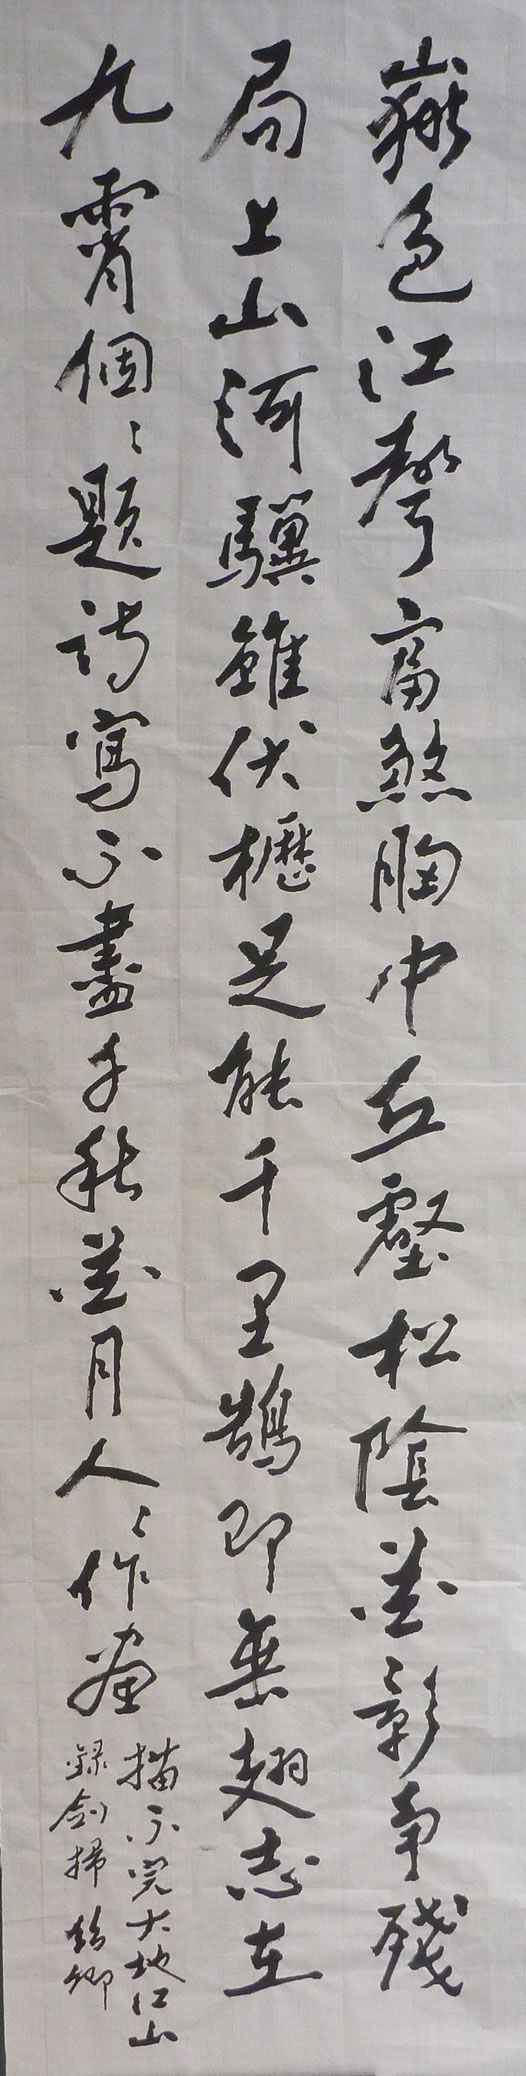 嶽色江聲富煞胸中丘壑松陰花影爭殘
局上山河驥雖伏櫪足能千里鵠即垂翅志在
九霄個々題詩寫不盡千秋花月人々作畫
描不完大地江山
録劍掃